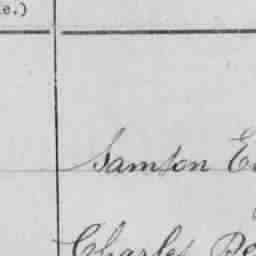 e.)
Samson E
Charles Pe